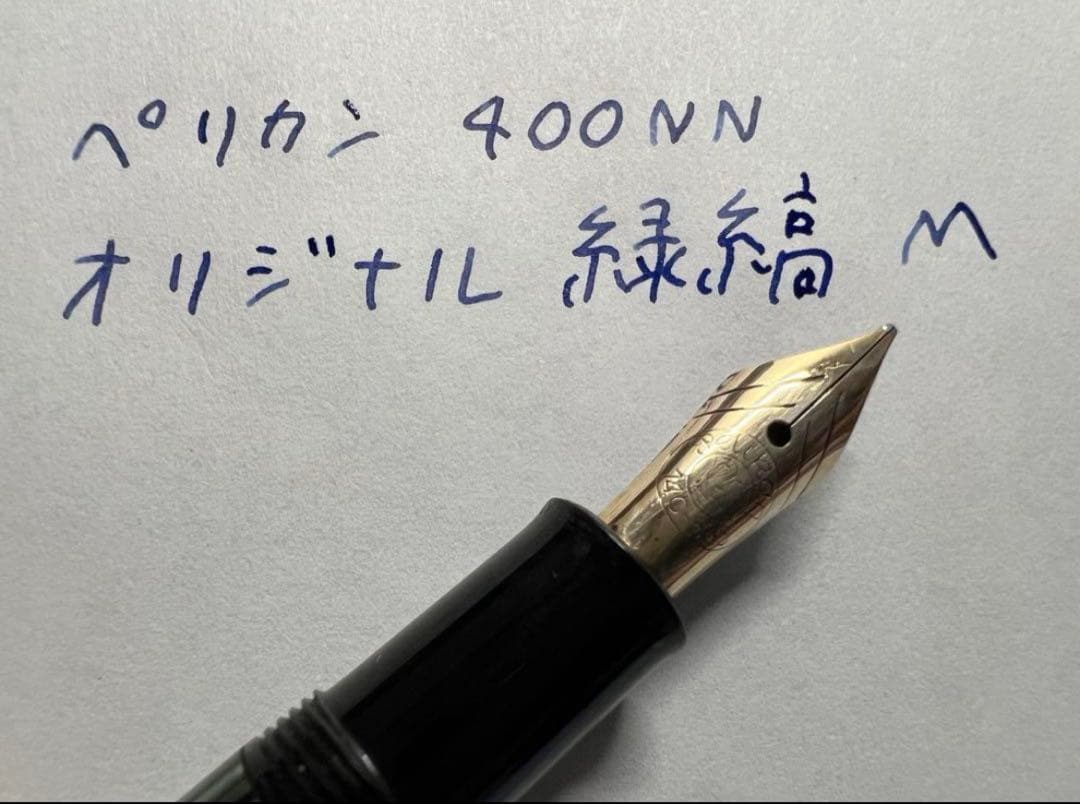 ペリカン 400NN
オリジナル 緑縞 M